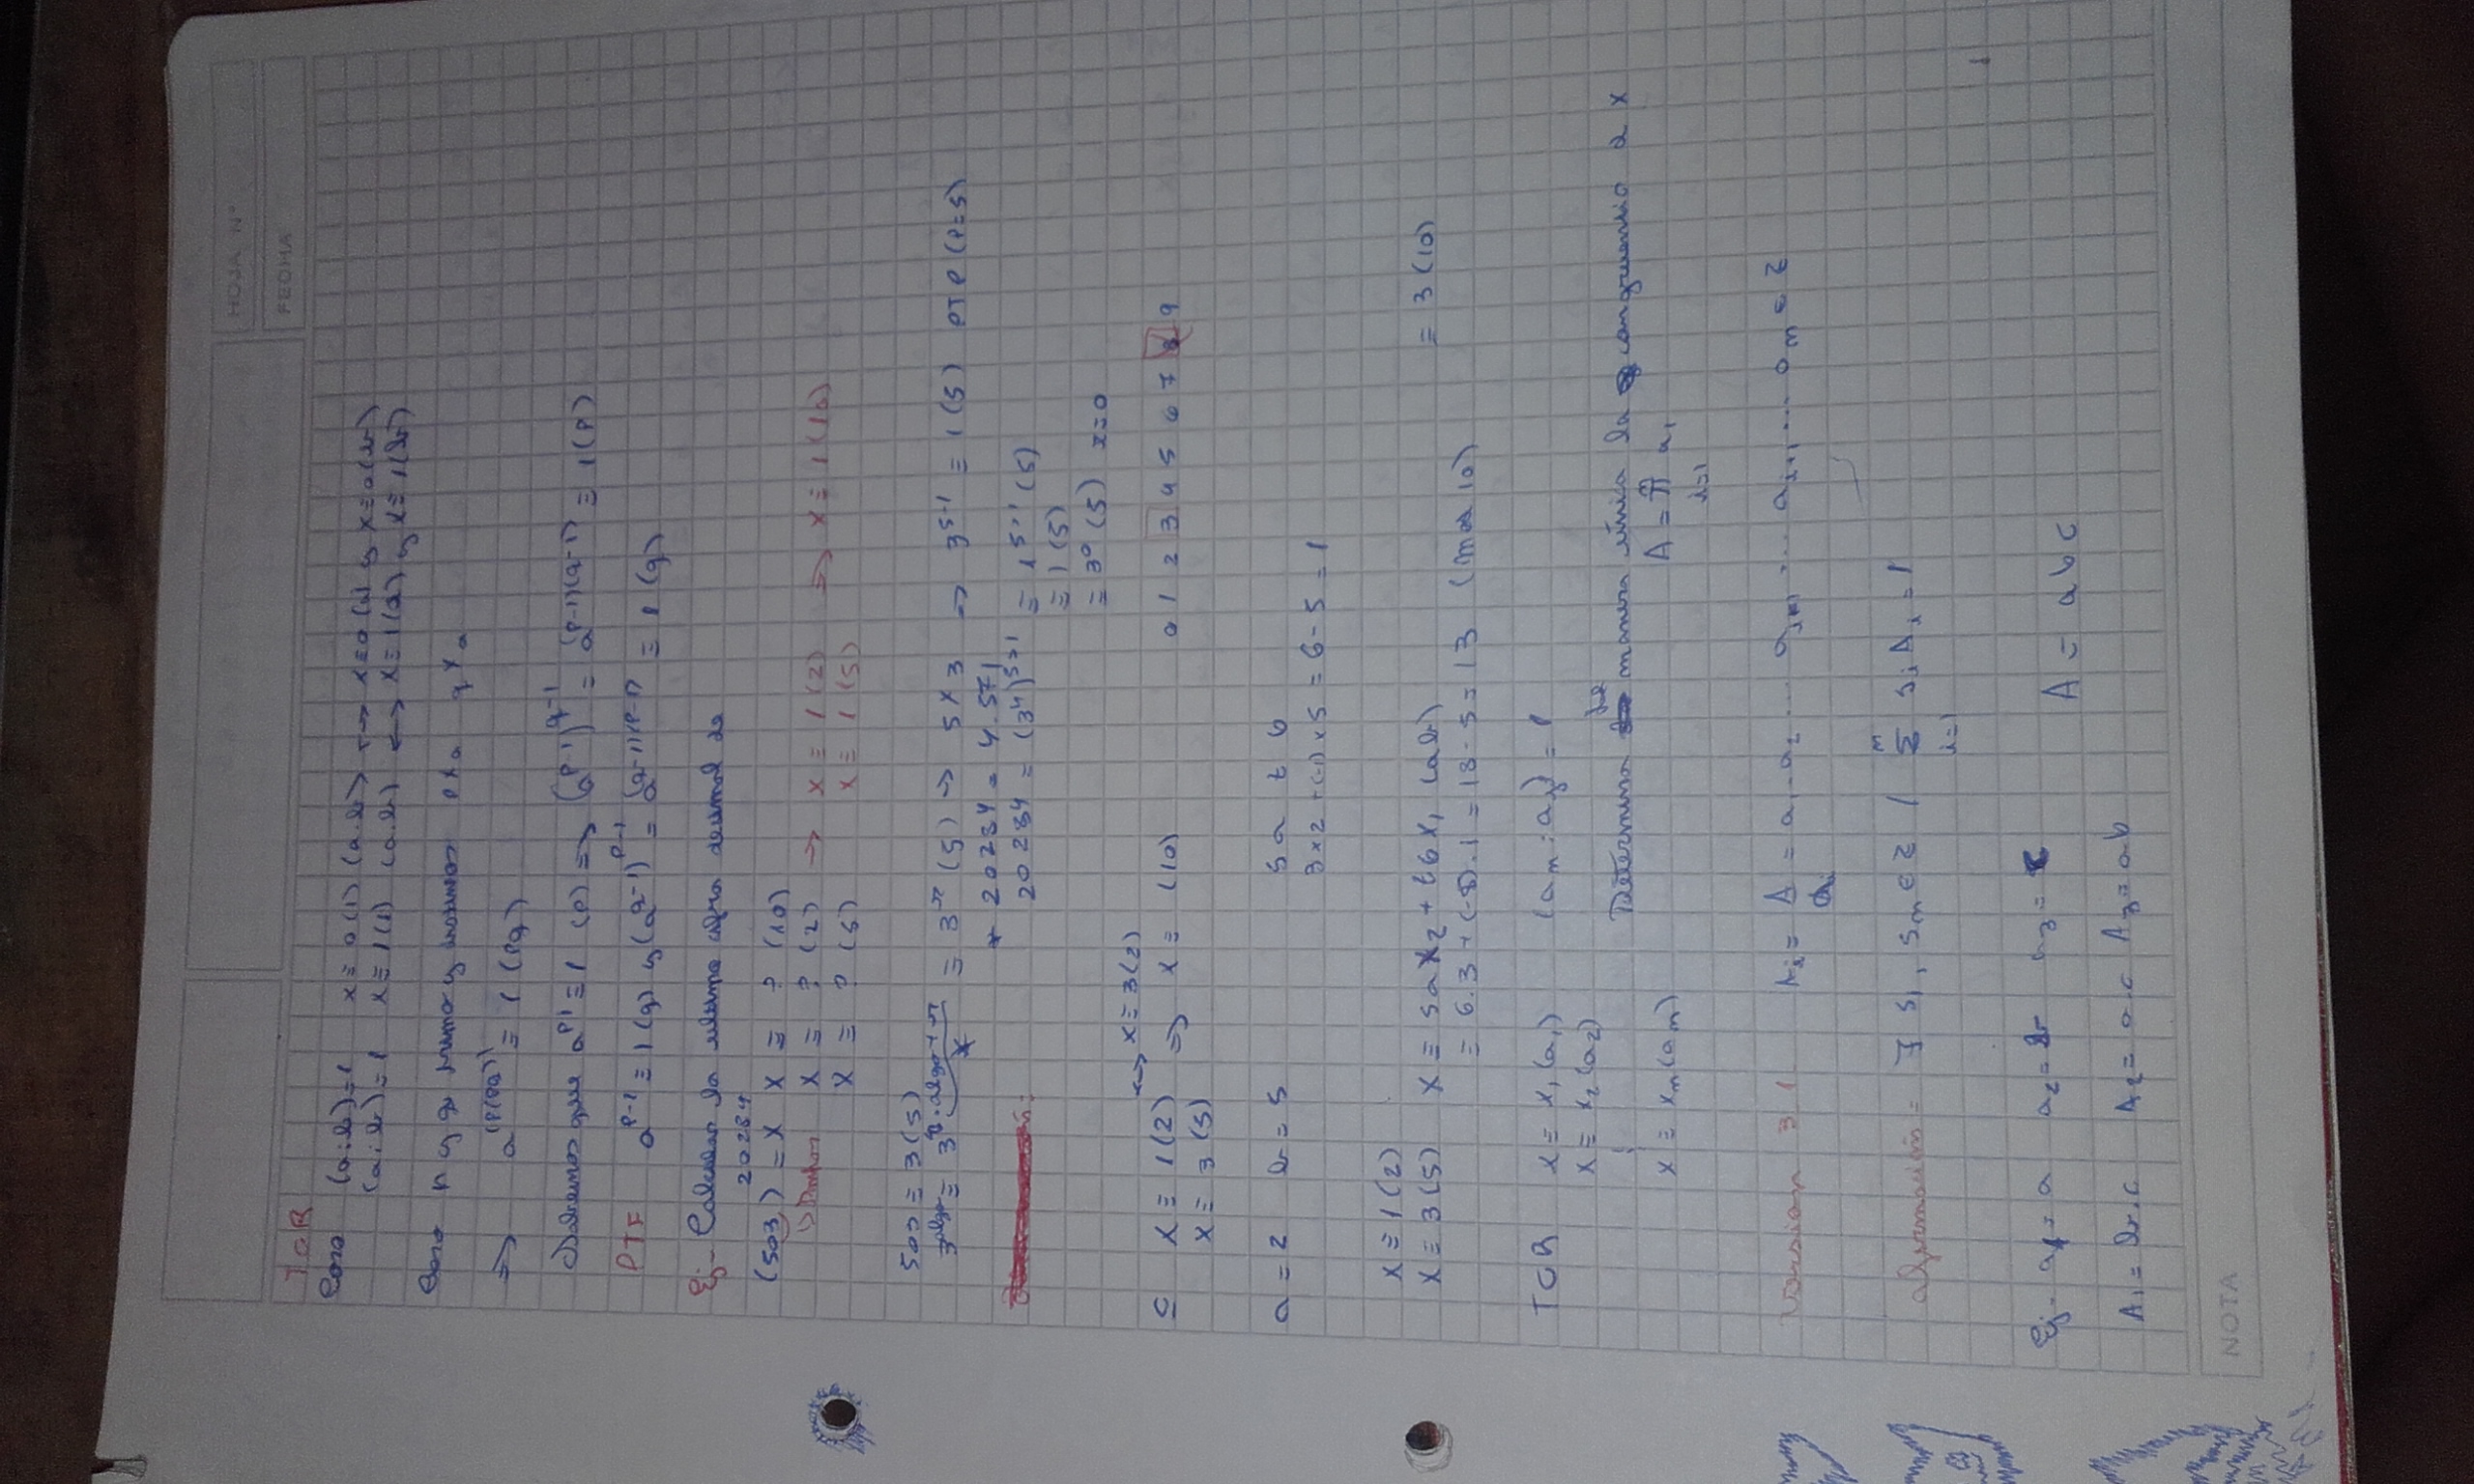 HOJA N°
FECHA
TCR
Coro (a:b)=1 x≡0(1) (a.b) ↔ x≡0(a) y x≡0(b)
(a:b)=1 x≡1(1) (a.b) ↔ x≡1(a) y x≡1(b)
Coro p y q primo y p∤a q∤a
⇒ a^(φ(pq)) ≡ 1 (pq)
Sabemos que a^p1 ≡ 1 (p) ⇒ (a^p-1)^q-1 = a^(p-1)(q-1) ≡ 1(p)
PTF a^p-1 ≡ 1(q) y (a^q-1)^p-1 = a^(q-1)(p-1) ≡ 1 (q)
Ej- Calcular la ultima cifra decimal de
(503)^20284 = x x ≡ ? (10)
↳ Impar x ≡ ? (2) → x ≡ 1(2) ⇒ x ≡ 1(10)
x ≡ ? (5) x ≡ 1(5)
503 ≡ 3(5)
3^algo ≡ 3^4.algo+r ≡ 3^r (5) → 5∤3 ⇒ 3^5-1 ≡ 1(5) PTF (P=5)
* 20284 = 4.571
20284 = (3^4)^571 ≡ 1^571 (5)
≡ 1(5)
≡ 3^0 (5) r=0
↔ x≡3(2)
C x ≡ 1(2) ⇒ x ≡ (10) 0 1 2 3 4 5 6 7 8 9
x ≡ 3(5)
a = 2 b = 5 sa t b
3×2 +(-1)×5 = 6-5 = 1
x ≡ 1(2)
x ≡ 3(5) x ≡ sax₂ + tbx₁ (ab) ≡ 3(10)
≡ 6.3 + (-5).1 = 18-5 = 13 (mod 10)
TCR x ≡ x₁(a₁) (aₙ:aⱼ) = 1
x ≡ x₂(a₂)
⋮ Determina de manera única la congruencia d x
x ≡ xₙ(aₙ) A = ∏ i=1 n aᵢ
Version 3.1 Aᵢ = A/aᵢ = a₁.a₂ ... aᵢ₋₁ ... aᵢ₊₁ ... aₙ ∈ Z
afirmación = ∃ s₁, sₙ ∈ Z / ∑ i=1 n sᵢAᵢ = 1
Ej- a₁ = a a₂ = b a₃ = c
A = abc
A₁ = b.c A₂ = a.c A₃ = ab
NOTA